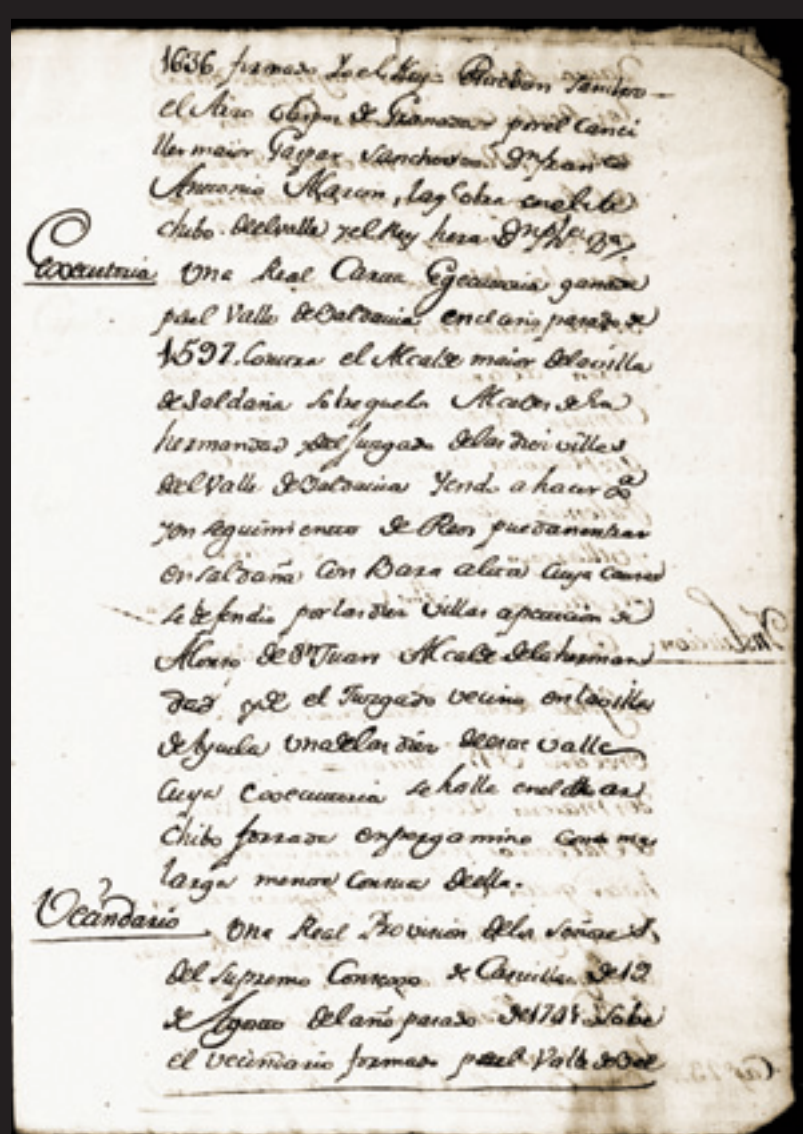 1636 formado Yo el Rey
el Arzobispo de Granada por el Canci
ller maior Gaspar Sanchez Dn Fran co
Antonio Alarcon,
chibo. de el valle y el Rey hera Dn Phe.
Executoria Una Real Carta Egecutoria ganada
por el Valle de Valdavia en el año pasado de
1597. Contra el Alcalde maior de la villa
de Saldaña sobre que los Alcaldes de la
hermandad y del Juzgado de las diez villas
del Valle de Valdavia Yendo a hacer
y en seguimiento de Reos puedan entrar
en Saldaña Con Bara alta Cuya Causa
se defendio por las diez Villas a peticion de
Alonso de Sn Juan Alcalde de la herman
dad y de el Juzgado vecino en la villa
de Ayuela Una de las diez de este valle
Cuya Executoria se halla en el ar
chibo forrada en pergamino Como mas
larga mente Consta de ella.
Vecindario Una Real Provision de los Señores
del Supremo Consejo de Castilla de 12
de Agosto del año pasado de Sobre
el vecindario formado por el Valle de Val